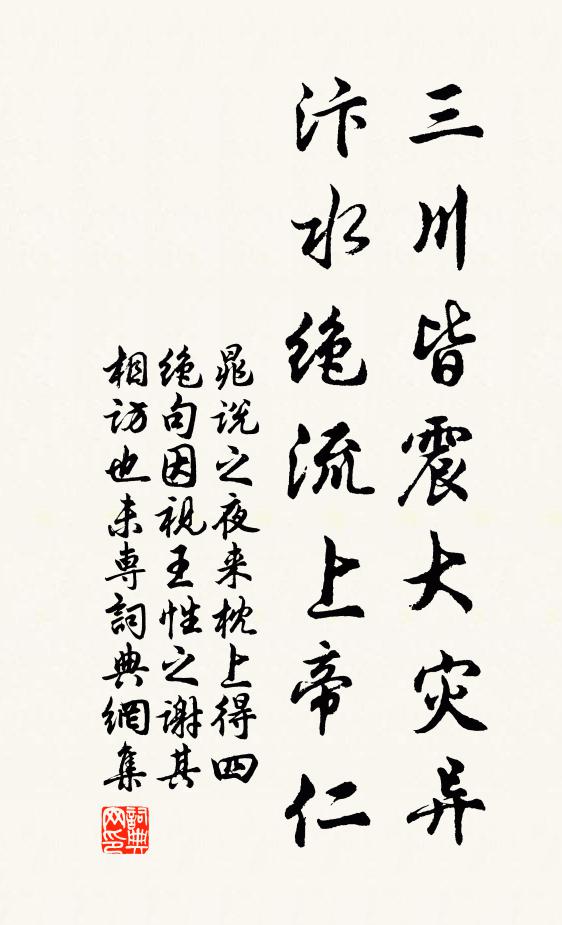 三川皆震大灾异
汴水绝流上帝仁
晁说之夜来枕上得四
绝句因视王性之谢其
相访也未専詞典網集
詞典
网印